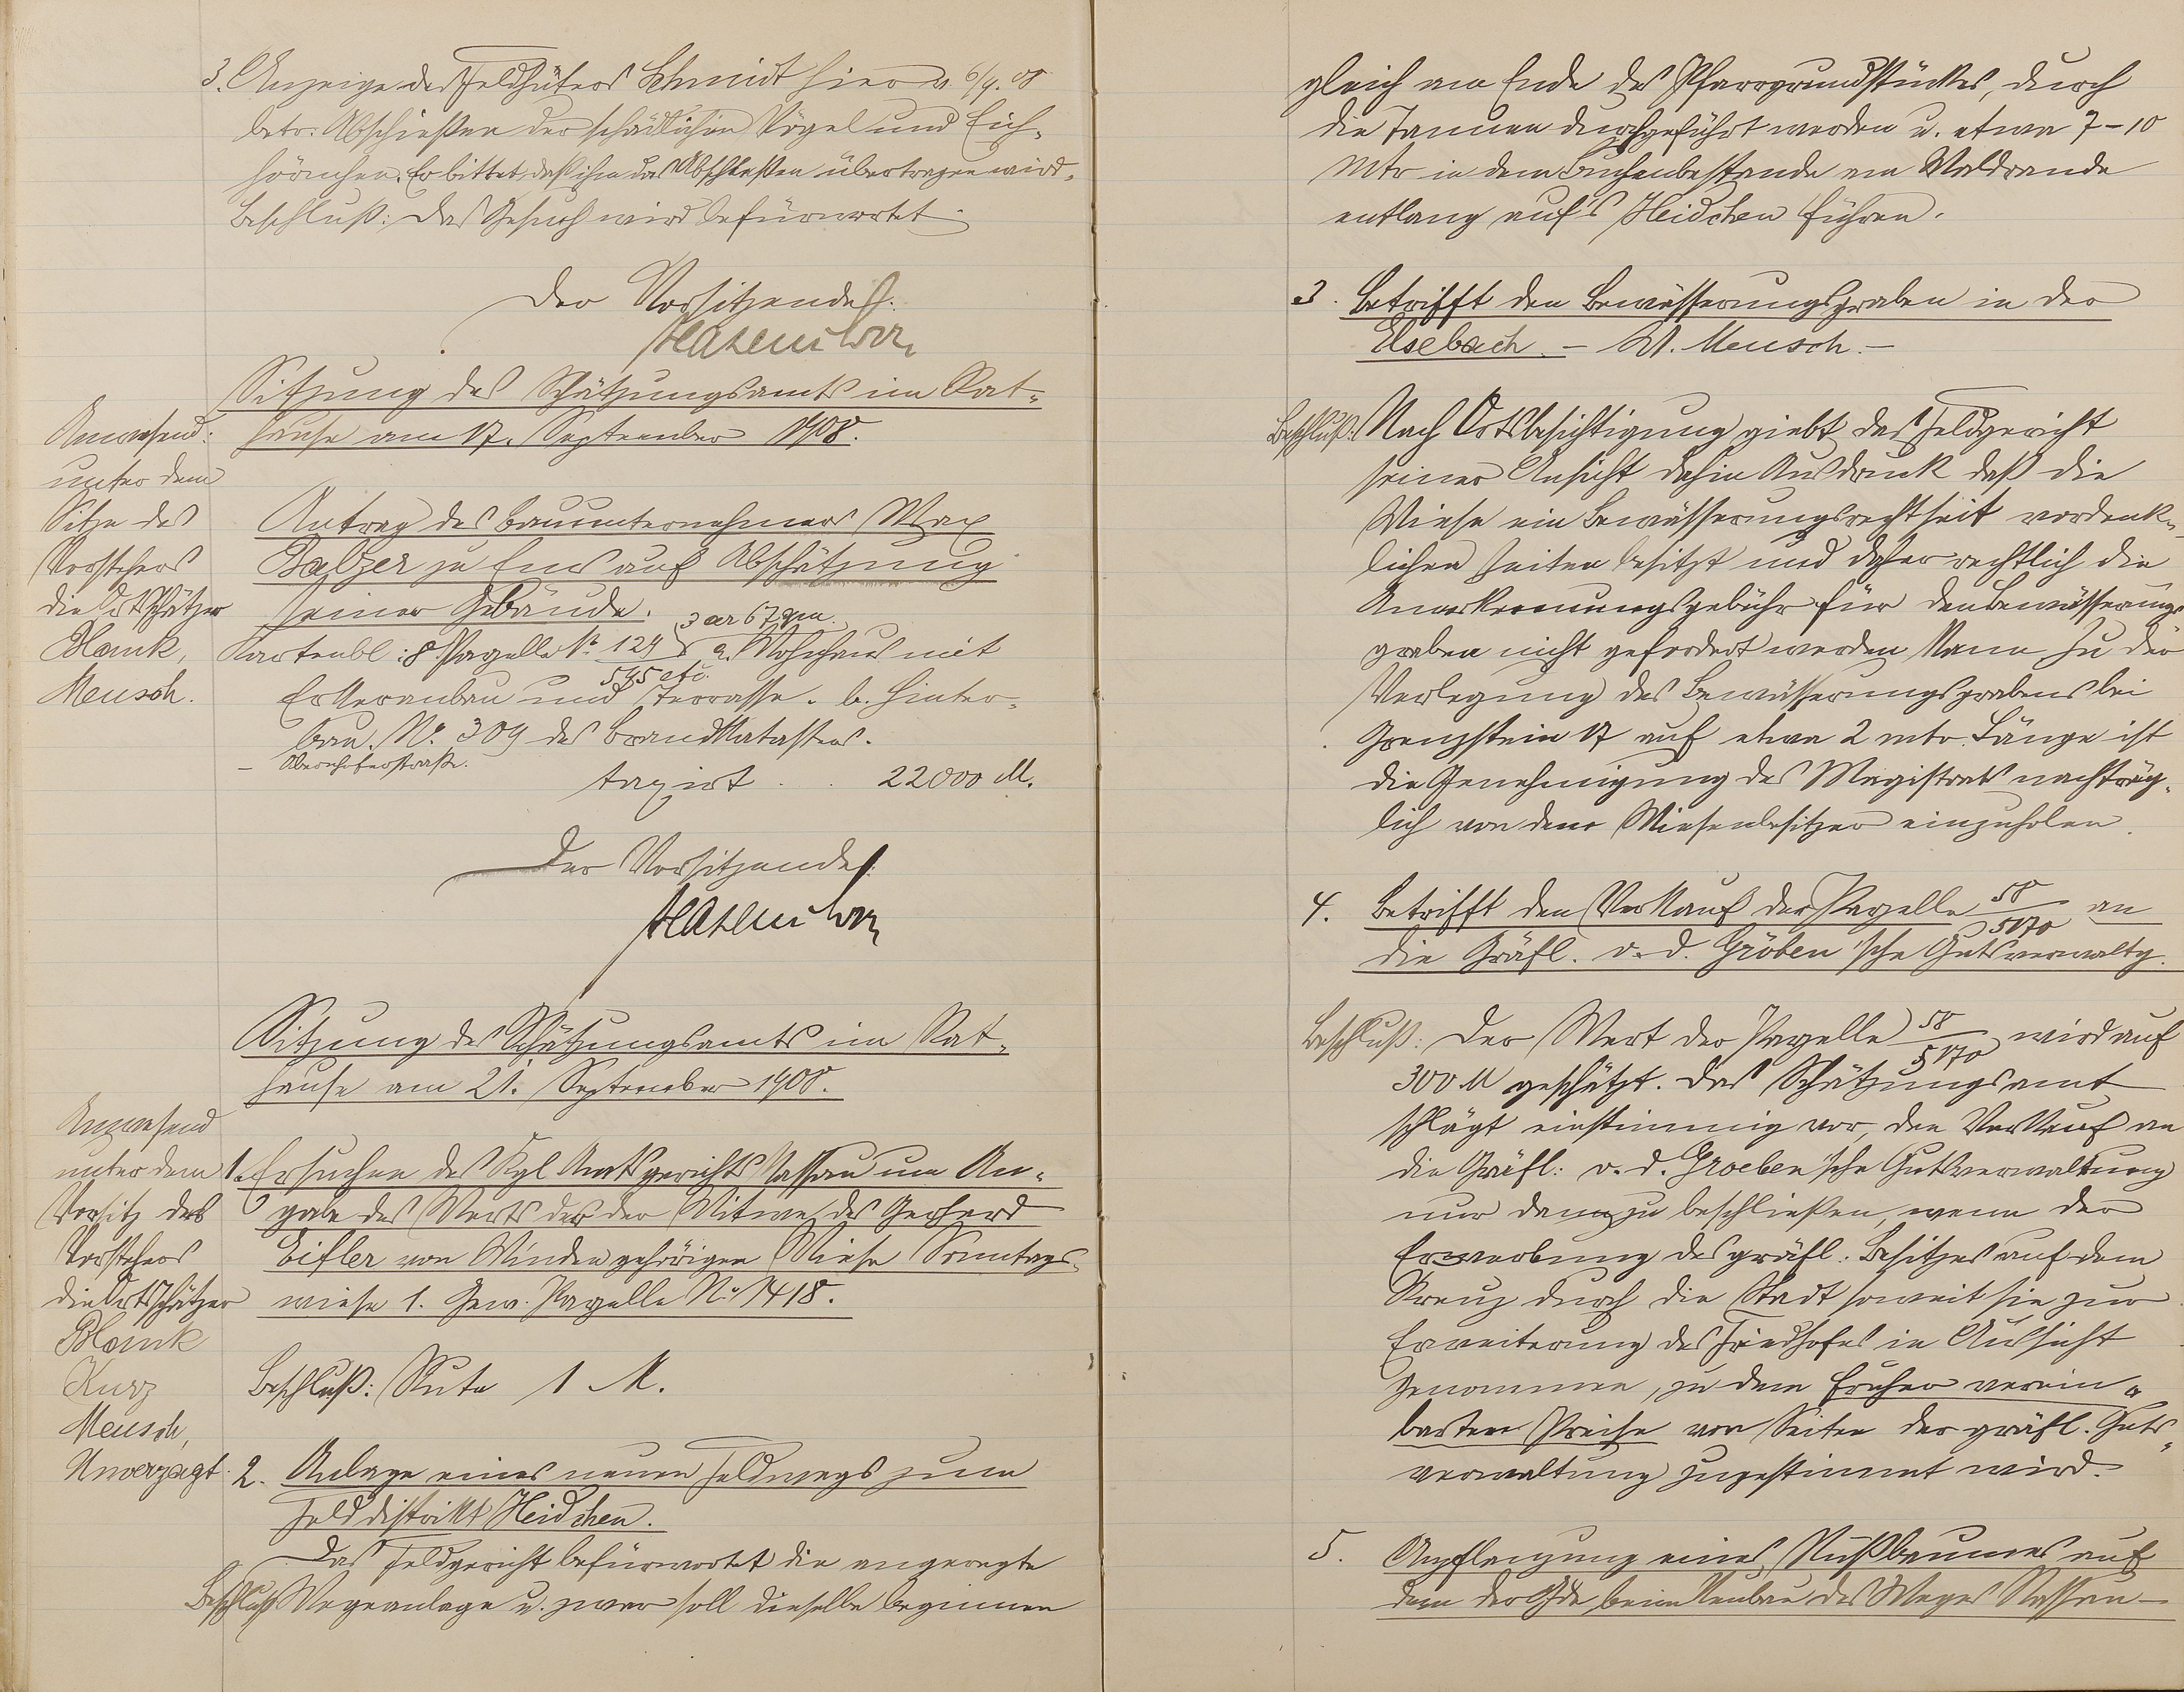 3. Anzeige des Feldhüters Schmidt hier v. 6/9. 08
betr. Abschießen der schädlichen Vögel und Eich-
hörnchen. Er bittet, daß ihm das Abschießen übertragen wird.
Beschluß: Das Gesuch wird befürwortet.
Der Vorsitzende:
Sitzung des Schätzungsamts im Rat-
hause am 17. September 1908.
Anwesend:
unter dem
Sitze des
Vorstehers
die Ortsschätzer
Blank,
Meusch.
Antrag des Bauunternehmers Max
Balzer zu Ems auf Abschätzung
seiner Gebäude.
3 ar 67 qm.
Kartenbl: 8. Parzelle № 124 a. Wohnhaus mit
595 etc.
Erkeranbau und Terrasse. b. Hinter-
bau. No. 309 des Brandkatasters.
- Obernhoferstraße.
taxirt . . 22000 M.
Der Vorsitzende:
Sitzung des Schätzungsamts im Rat-
hause am 21. September 1908.
Anwesend
unter dem
Vorsitz des
Vorstehers
die Ortsschätzer
Blank
Kurz
Meusch,
Unverzagt.
1. Ersuchen des Kgl Amtsgerichts Nassau um An-
gabe des Werts der der Witwe des Gerhard
Eifler von Winden gehörigen Wiese Sonntags-
wiese 1. Gew. Parzelle No 1418.
Beschluß: Rute 1 M.
2. Anlage eines neuen Feldwegs zum
Felddistrikt Heidchen.
Das Feldgericht befürwortet die angeregte
Beschluß Wegeanlage u. zwar soll dieselbe beginnen
gleich am Ende des Pfarrgrundstückes, durch
die Tannen durchgeführt werden u. etwa 7-10
Mtr in dem Buchenbestande am Waldrande
entlang auf's Heidchen führen.
3. Betrifft den Bewässerungsgraben in der
Elsebach. - W. Meusch. -
Beschluß: Nach Ortsbesichtigung giebt das Feldgericht
seiner Ansicht dahin Ausdruck daß die
Wiese ein Bewässerungsrecht seit vordenk-
lichen Zeiten besitzt und daher rechtlich die
Anerkennungsgebühr für den Bewässerungs
graben nicht gefordert werden kann Zu der
Verlegung des Bewässerungsgrabens bei
Grenzstein 17 auf etwa 2 mtr. Länge ist
die Genehmigung des Magistrats nachträg-
lich von dem Wiesenbesitzer einzuholen.
4. Betrifft den Verkauf der Parzelle 58/5170 an
die Gräfl. v. d. Gröben'sche Gutsverwaltg.
Beschluß: Der Wert der Parzelle 58/5170 wird auf
300 M geschätzt. Das Schätzungsamt
schlägt einstimmig vor, den Verkauf an
die Gräfl: v. d. Groeben'sche Gutsverwaltung
nur dann zu beschließen, wenn der
Erwerbung des gräfl. Besitzes auf dem
Kreuz durch die Stadt soweit sie zur
Erweiterung des Friedhofes in Aussicht
genommen, zu dem früher verein-
barten Preise von Seiten der gräfl. Guts-
verwaltung zugestimmt wird.
5. Anpflanzung eines Nußbaumes auf
dem der beim Neubau des Weges Nassau-